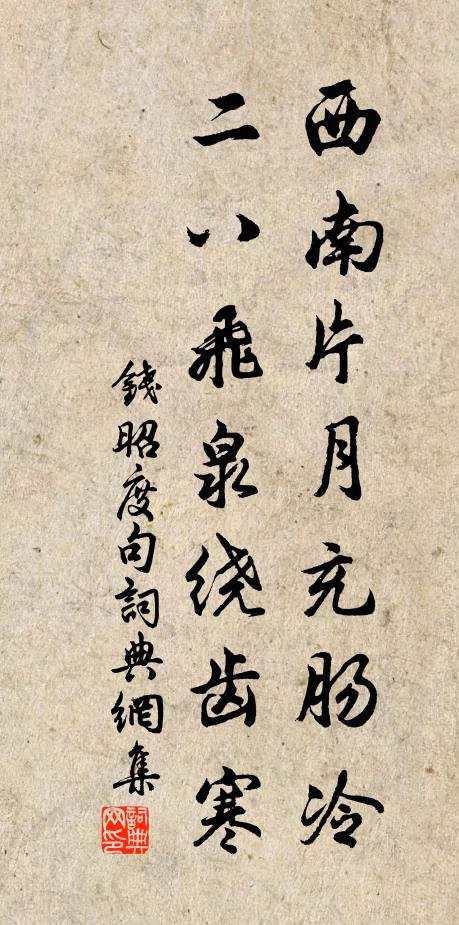 西南片月充肠冷
二八飛泉绕齿寒
錢昭度句詞典網集
詞典网印